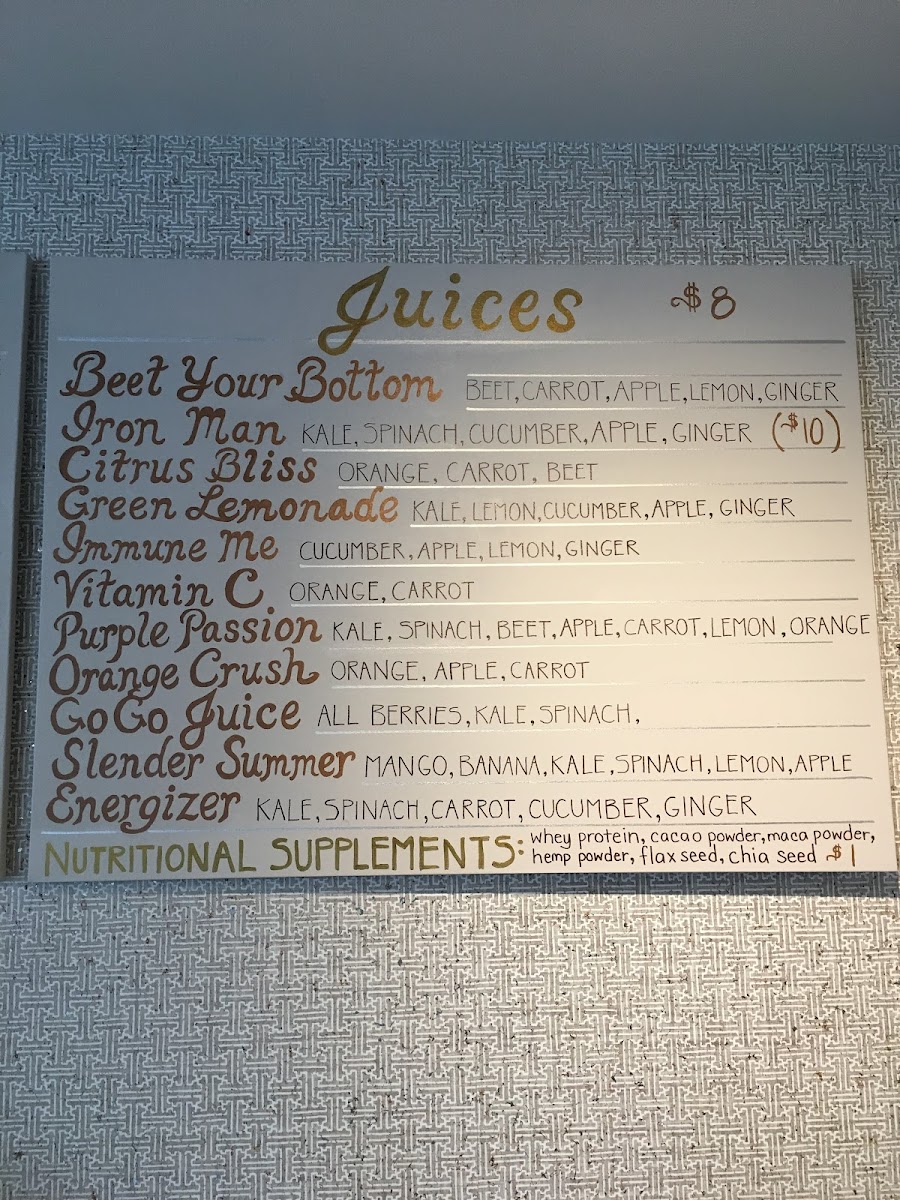 Juices $8
Beet Your Bottom BEET, CARROT, APPLE, LEMON, GINGER
Iron Man KALE, SPINACH, CUCUMBER, APPLE, GINGER ($10)
Citrus Bliss ORANGE, CARROT, BEET
Green Lemonade KALE, LEMON, CUCUMBER, APPLE, GINGER
Immune Me CUCUMBER, APPLE, LEMON, GINGER
Vitamin C ORANGE, CARROT
Purple Passion KALE, SPINACH, BEET, APPLE, CARROT, LEMON, ORANGE
Orange Crush ORANGE, APPLE, CARROT
GoGo Juice ALL BERRIES, KALE, SPINACH,
Slender Summer MANGO, BANANA, KALE, SPINACH, LEMON, APPLE
Energizer KALE, SPINACH, CARROT, CUCUMBER, GINGER
NUTRITIONAL SUPPLEMENTS: whey protein, cacao powder, maca powder,
hemp powder, flax seed, chia seed $1